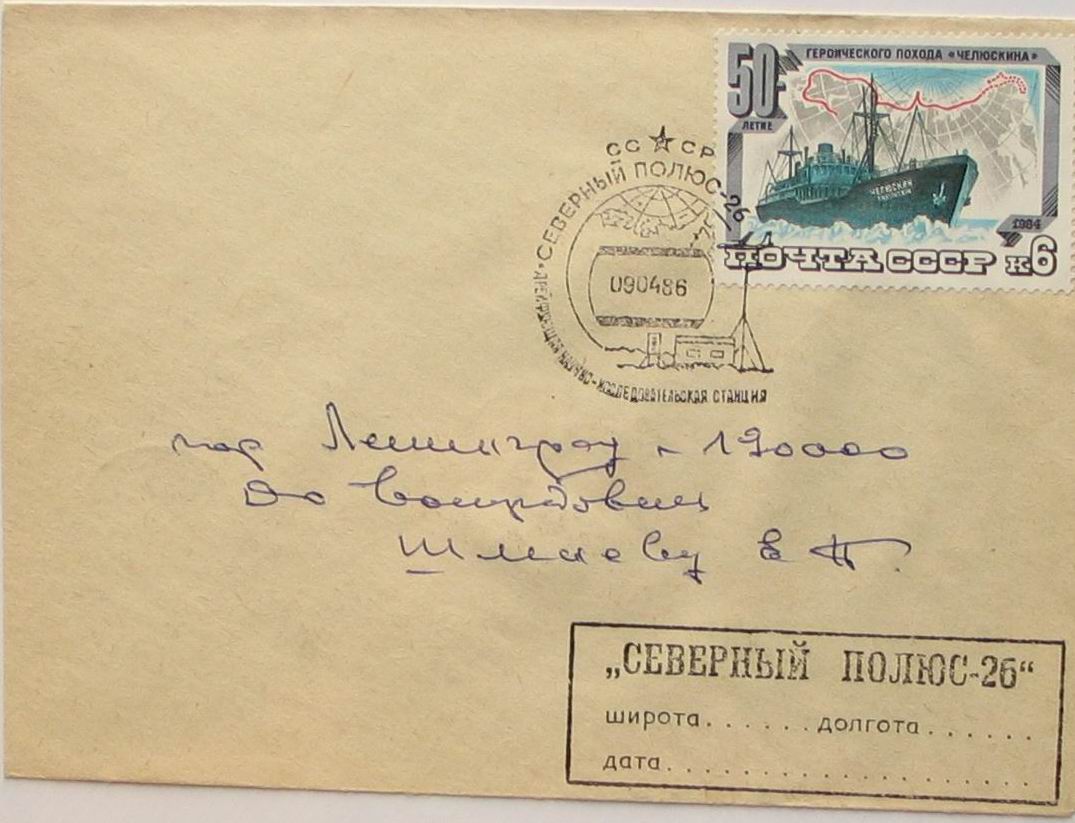 50-
ЛЕТИЕ
ГЕРОИЧЕСКОГО ПОХОДА «ЧЕЛЮСКИНА»
ЧЕЛЮСКИН
1984
ПОЧТА СССР К6
СССР
СЕВЕРНЫЙ ПОЛЮС-26
090486
НАУЧНО-ИССЛЕДОВАТЕЛЬСКАЯ СТАНЦИЯ
гор Ленинград - 190000
До востребования
Шмиеву Е П.
„СЕВЕРНЫЙ ПОЛЮС-26“
широта . . . . . . долгота . . . . . .
дата . . . . . . . . . . . . . . . . . . . .